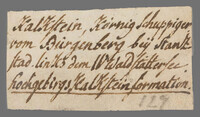 Kalkstein, Körnig schuppiger
vom Bürgenberg bey Stank
stad. links dem Waldstättersee
hochgebirgs, Kalkstein formation.
127